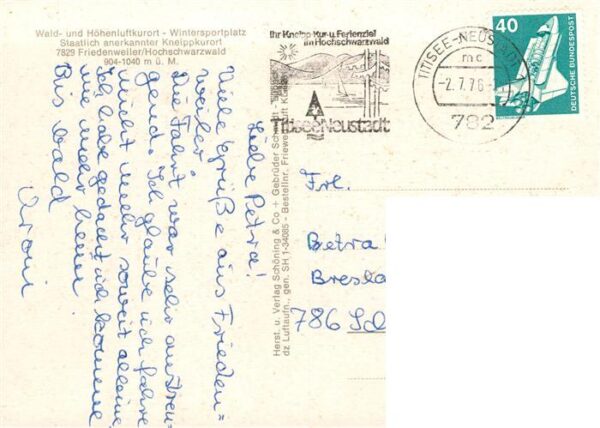 Wald- und Höhenluftkurort - Wintersportplatz
Staatlich anerkannter Kneippkurort
7829 Friedenweiler/Hochschwarzwald
904-1040 m ü. M.
Liebe Petra!
Viele Grüße aus Frieden=
weiler.
Die Fahrt war sehr anstren=
gend. Ich glaube ich fahre
nicht mehr soweit alleine.
Ich habe gedacht ich komme
nie mehr heim.
Bis bald
Herst. u. Verlag Schöning & Co + Gebrüder Schmidt
dz Luftaufn., gen. SH 1-34085 - Bestellnr. Friewe
Ihr Kneipp-Kur- u. Ferienziel
im Hochschwarzwald
Titisee-Neustadt
TITISEE-NEUSTADT
mc
-2.7.76
782
40
DEUTSCHE BUNDESPOST
Frl.
Petra
Bresla
786 Sch